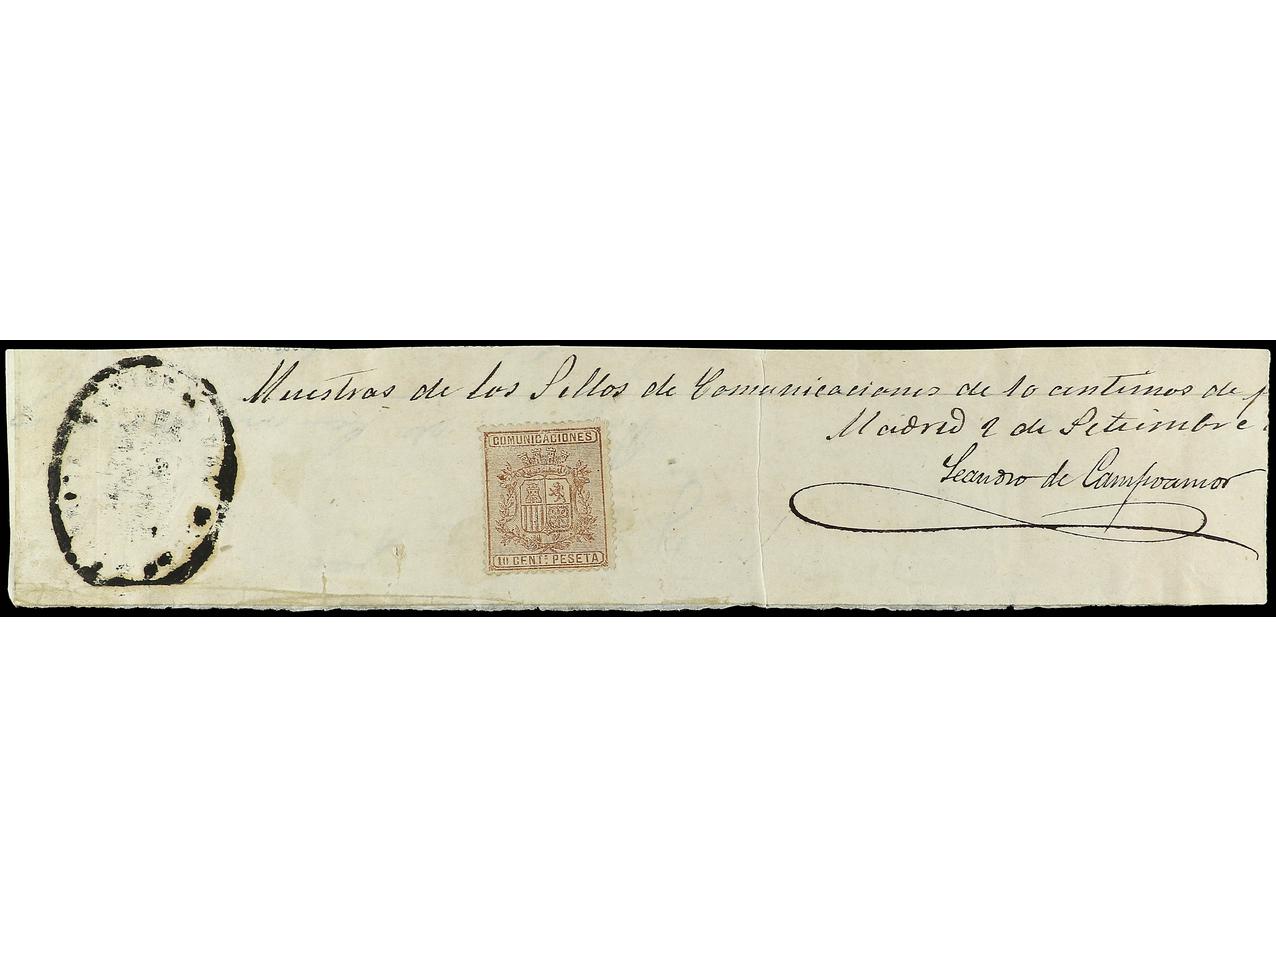 Muestras de los Sellos de Comunicaciones de 10 centimos de
Madrid 2 de Setiembre
Leandro de Campoamor
COMUNICACIONES
10 CENT. PESETA